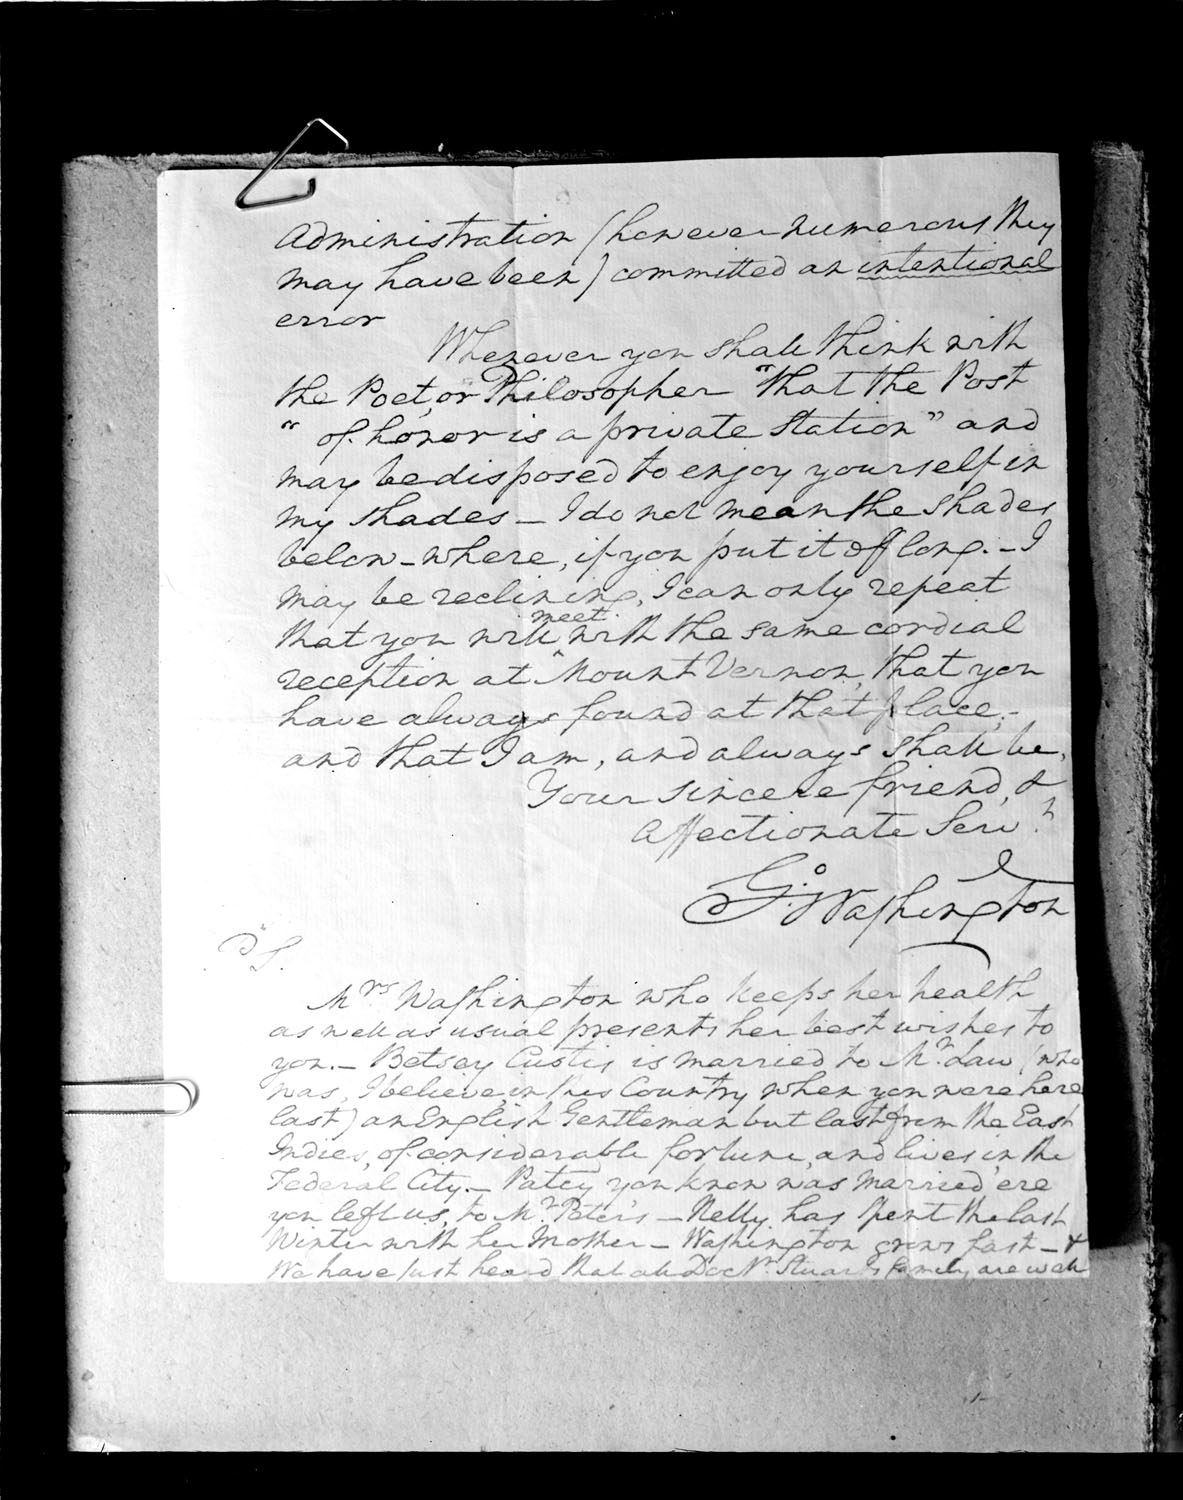 Administration (however numerous they
may have been) committed an intentional
error
Whenever you shall think with
the Poet, or Philosopher "that the Post
" of honor is a private station" and
may be disposed to enjoy yourself in
my shades — I do not mean the shades
below - where, if you put it off long. - I
may be reclining, I can only repeat
meet
that you will ^ with the same cordial
reception at Mount Vernon, that you
have always found at that place; -
and that I am, and always shall be,
Your sincere friend, &
Affectionate Servt
Go: Washington
PS.
Mrs Washington who keeps her health
as well as usual presents her best wishes to
you. - Betsey Custis is married to Mr. Law (who
was, I believe, in this Country when you were here
last) an English Gentleman but last from the East
Indies, of considerable fortune, and lives in the
Federal City. - Patcy you know was married ere
you left us, to Mr. Peter's — Nelly has spent the last
Winter with her Mother — Washington grows fast — &
We have just heard that all Doctr. Stuarts family are well